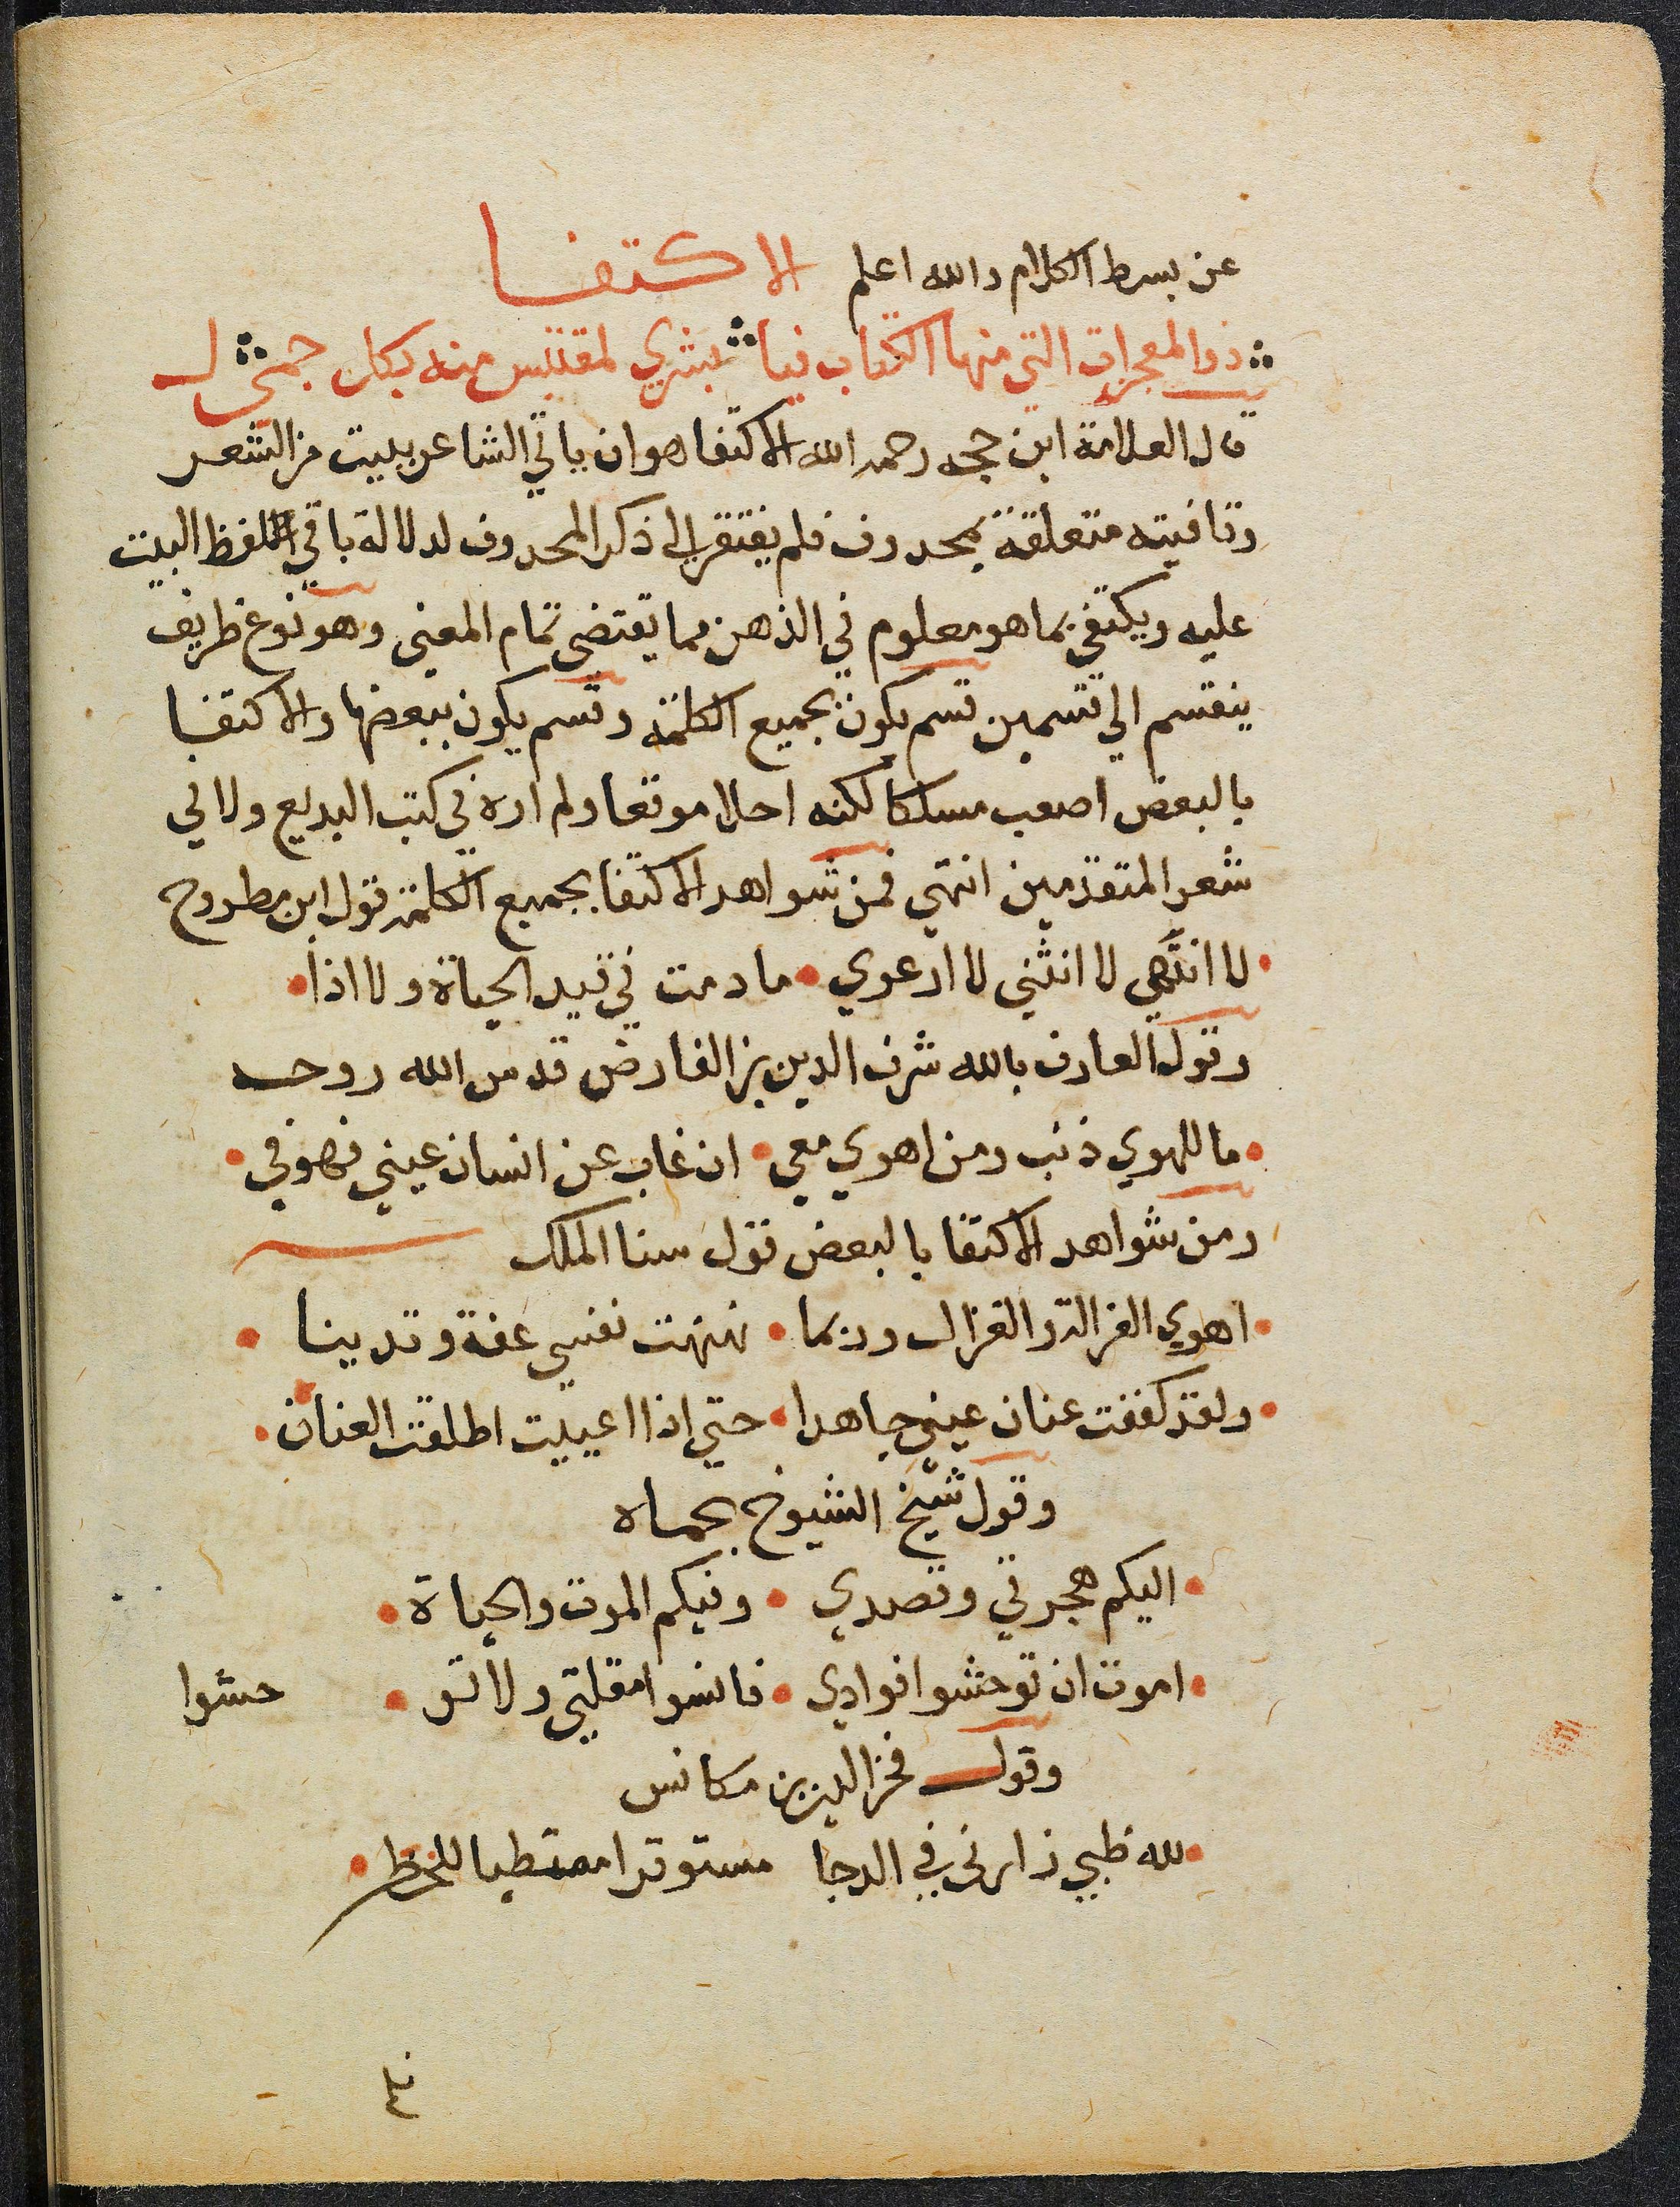 عن بسط الكلام والله اعلم الاكتفا
ذو المعجزات التي منها الكتاب فيا بشري لمقتبس منه بكل جمـ
قال العلامة ابن حجه رحمه الله الاكتفا هو ان ياتي الشاعر ببيت من الشعر
وقافيته متعلقة بمحدوف فلم يفتقر الى ذكر المحدوف لدلالة باقي لفظ البيت
عليه ويكتفي بما هو معلوم في الذهن مما يقتضي تمام المعنى وهو نوع ظريف
ينقسم الي قسمين قسم يكون بجميع الكلمة وقسم يكون ببعضها والاكتفا
بالبعض اصعب مسلكا لكنه احلا موقعا ولم اره في كتب البديع ولا في
شعر المتقدمين انتهي فمن شواهد الاكتفا بجميع الكلمة قول ابن مطروح
لا انتهي لا انثني لا ارعوي ما دمت في قيد الحياة ولا اذا
وقول العارف بالله شرف الدين بن الفارض قدس الله روحه
ما للهوي ذنب ومن اهوي معي ان غاب عن انسان عيني فهو في
ومن شواهد الاكتفا بالبعض قول سنا الملك
اهوي الغزالة والغزال وربما نهنهت نفسي عفة وتدينا
ولقد كففت عنان عيني جاهدا حتي اذا اعييت اطلقت العنان
وقول شيخ الشيوخ بحماه
اليكم هجرتي وقصدي وفيكم الموت والحياة
اموت ان توحشوا فوادي فانسوا مقلتي ولا تو حشوا
وقول فخر الدين بن مكانس
لله ظبي زارني في الدجا مستوقرا ممتطيا للخطر